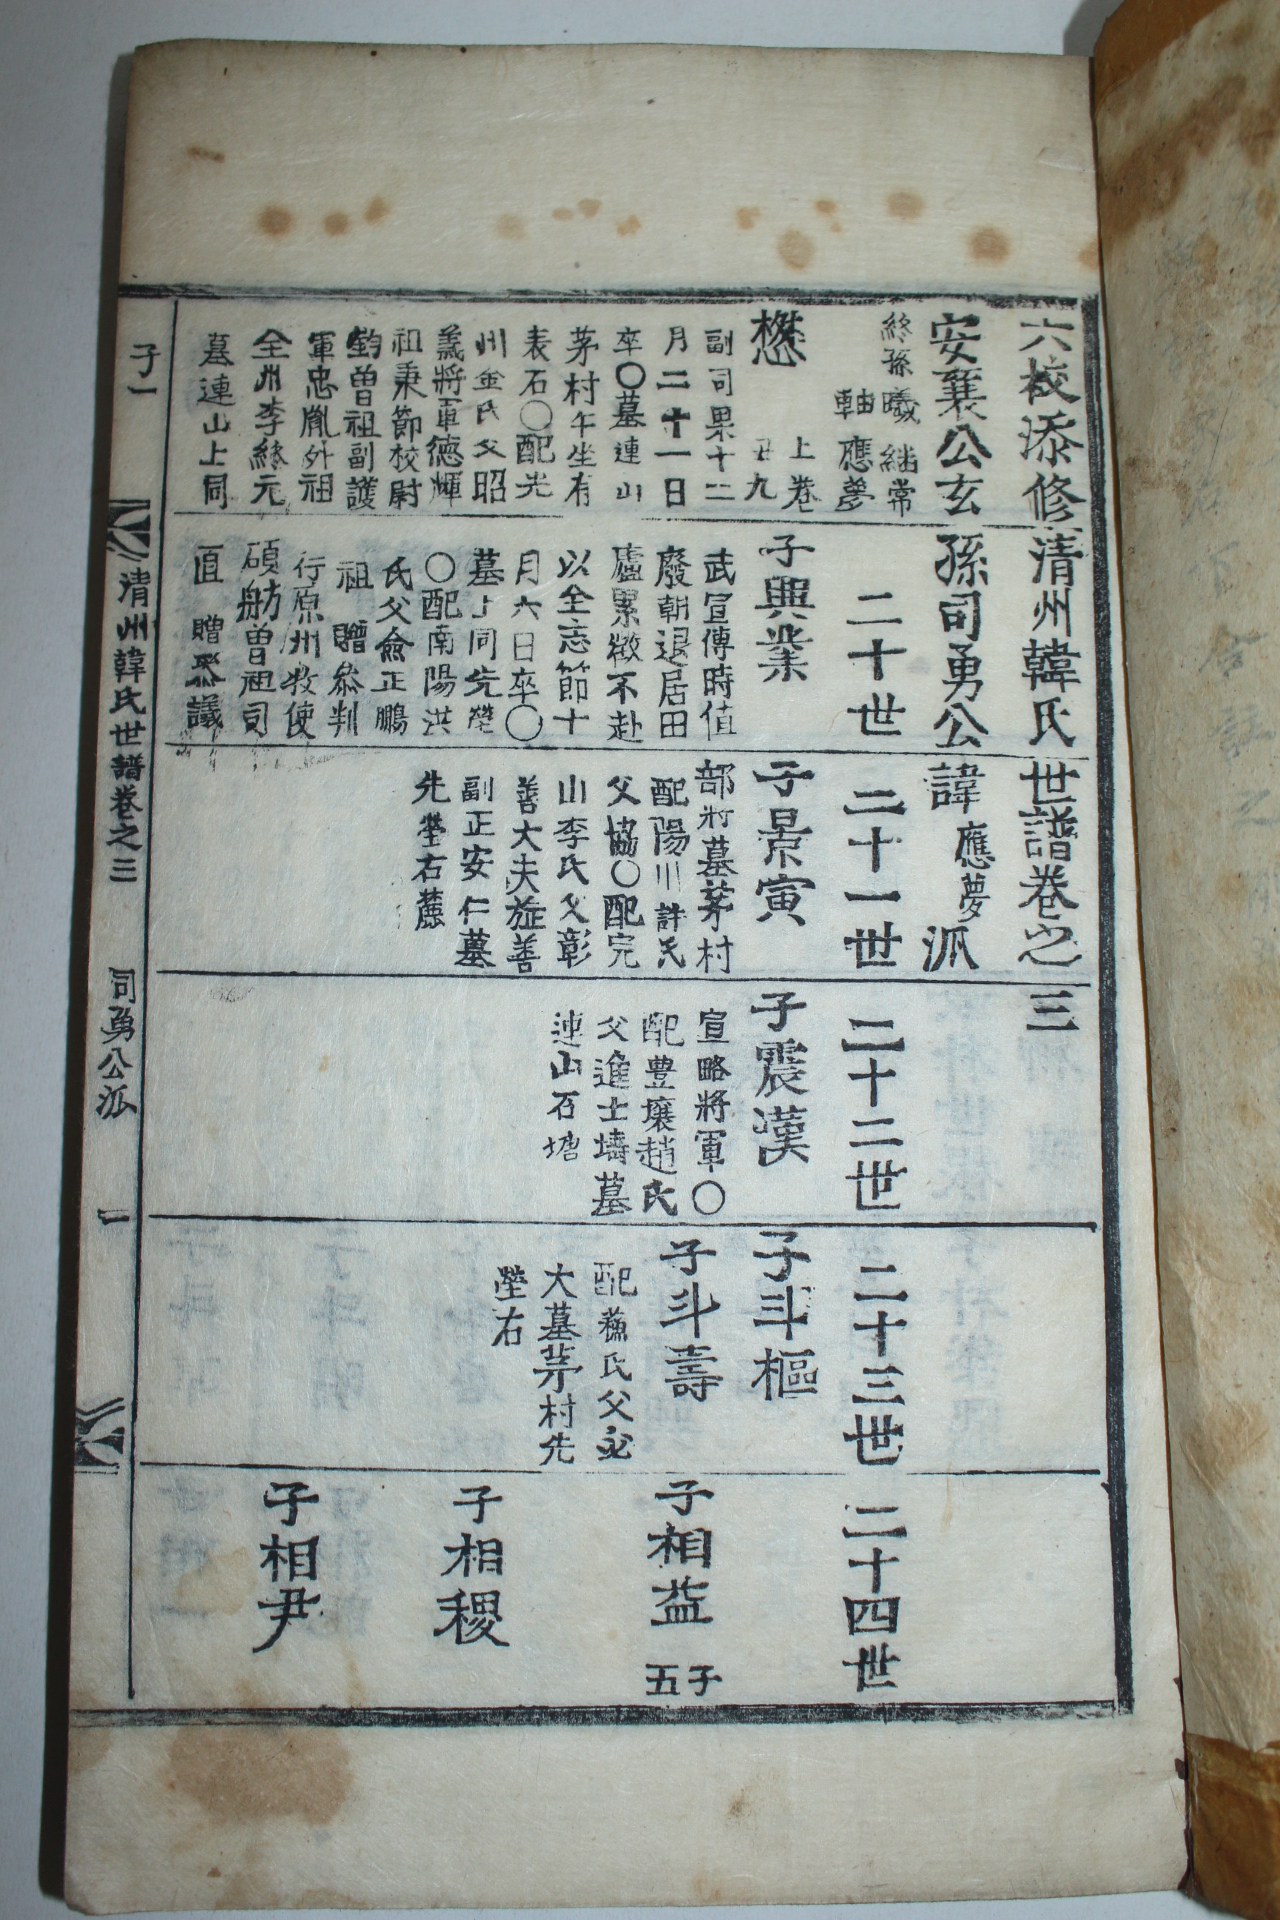 六校添修清州韓氏世譜卷之三
安襄公玄孫司勇公諱應夢派
終孫曦繼常
軸應夢
上卷
丑九
懋
副司果十二
月二十一日
卒〇墓連山
茅村午坐有
表石〇配光
州金氏父昭
義將軍德輝
祖秉節校尉
鈞曾祖副護
軍忠胤外祖
全州李終元
墓連山上同
二十世
子興業
武宣傳時値
廢朝退居田
廬累徵不赴
以全志節十
月六日卒〇
墓上同先塋
〇配南陽洪
氏父僉正鵬
祖贈參判
行原州牧使
碩舫曾祖司
直贈參議
二十一世
子景寅
部將墓茅村
配陽川許氏
父協〇配完
山李氏父彰
善大夫旌善
副正安仁墓
先塋右麓
二十二世
子震漢
宣略將軍〇
配豊壤趙氏
父進士壔墓
連山石塘
二十三世
子斗樞
子斗壽
配蘇氏父必
大墓茅村先
塋右
二十四世
子相益
子五
子相稷
子相尹
子一
清州韓氏世譜卷之三
司勇公派
一